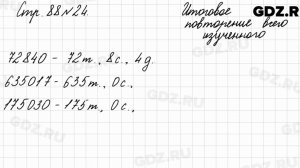 Стр. 88 № 24.
GDZ.RU
Итоговое
повторение всего
изученного
72840 - 72т., 8с., 4д.
635017 - 635т., 0с.,
175030 - 175т., 0с.,